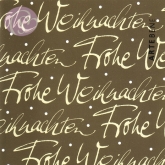 Frohe Weihnachten
Weihnachten Frohe
Frohe Weihnachten
Weihnachten Frohe
Frohe Weihnachten
Weihnachten Frohe